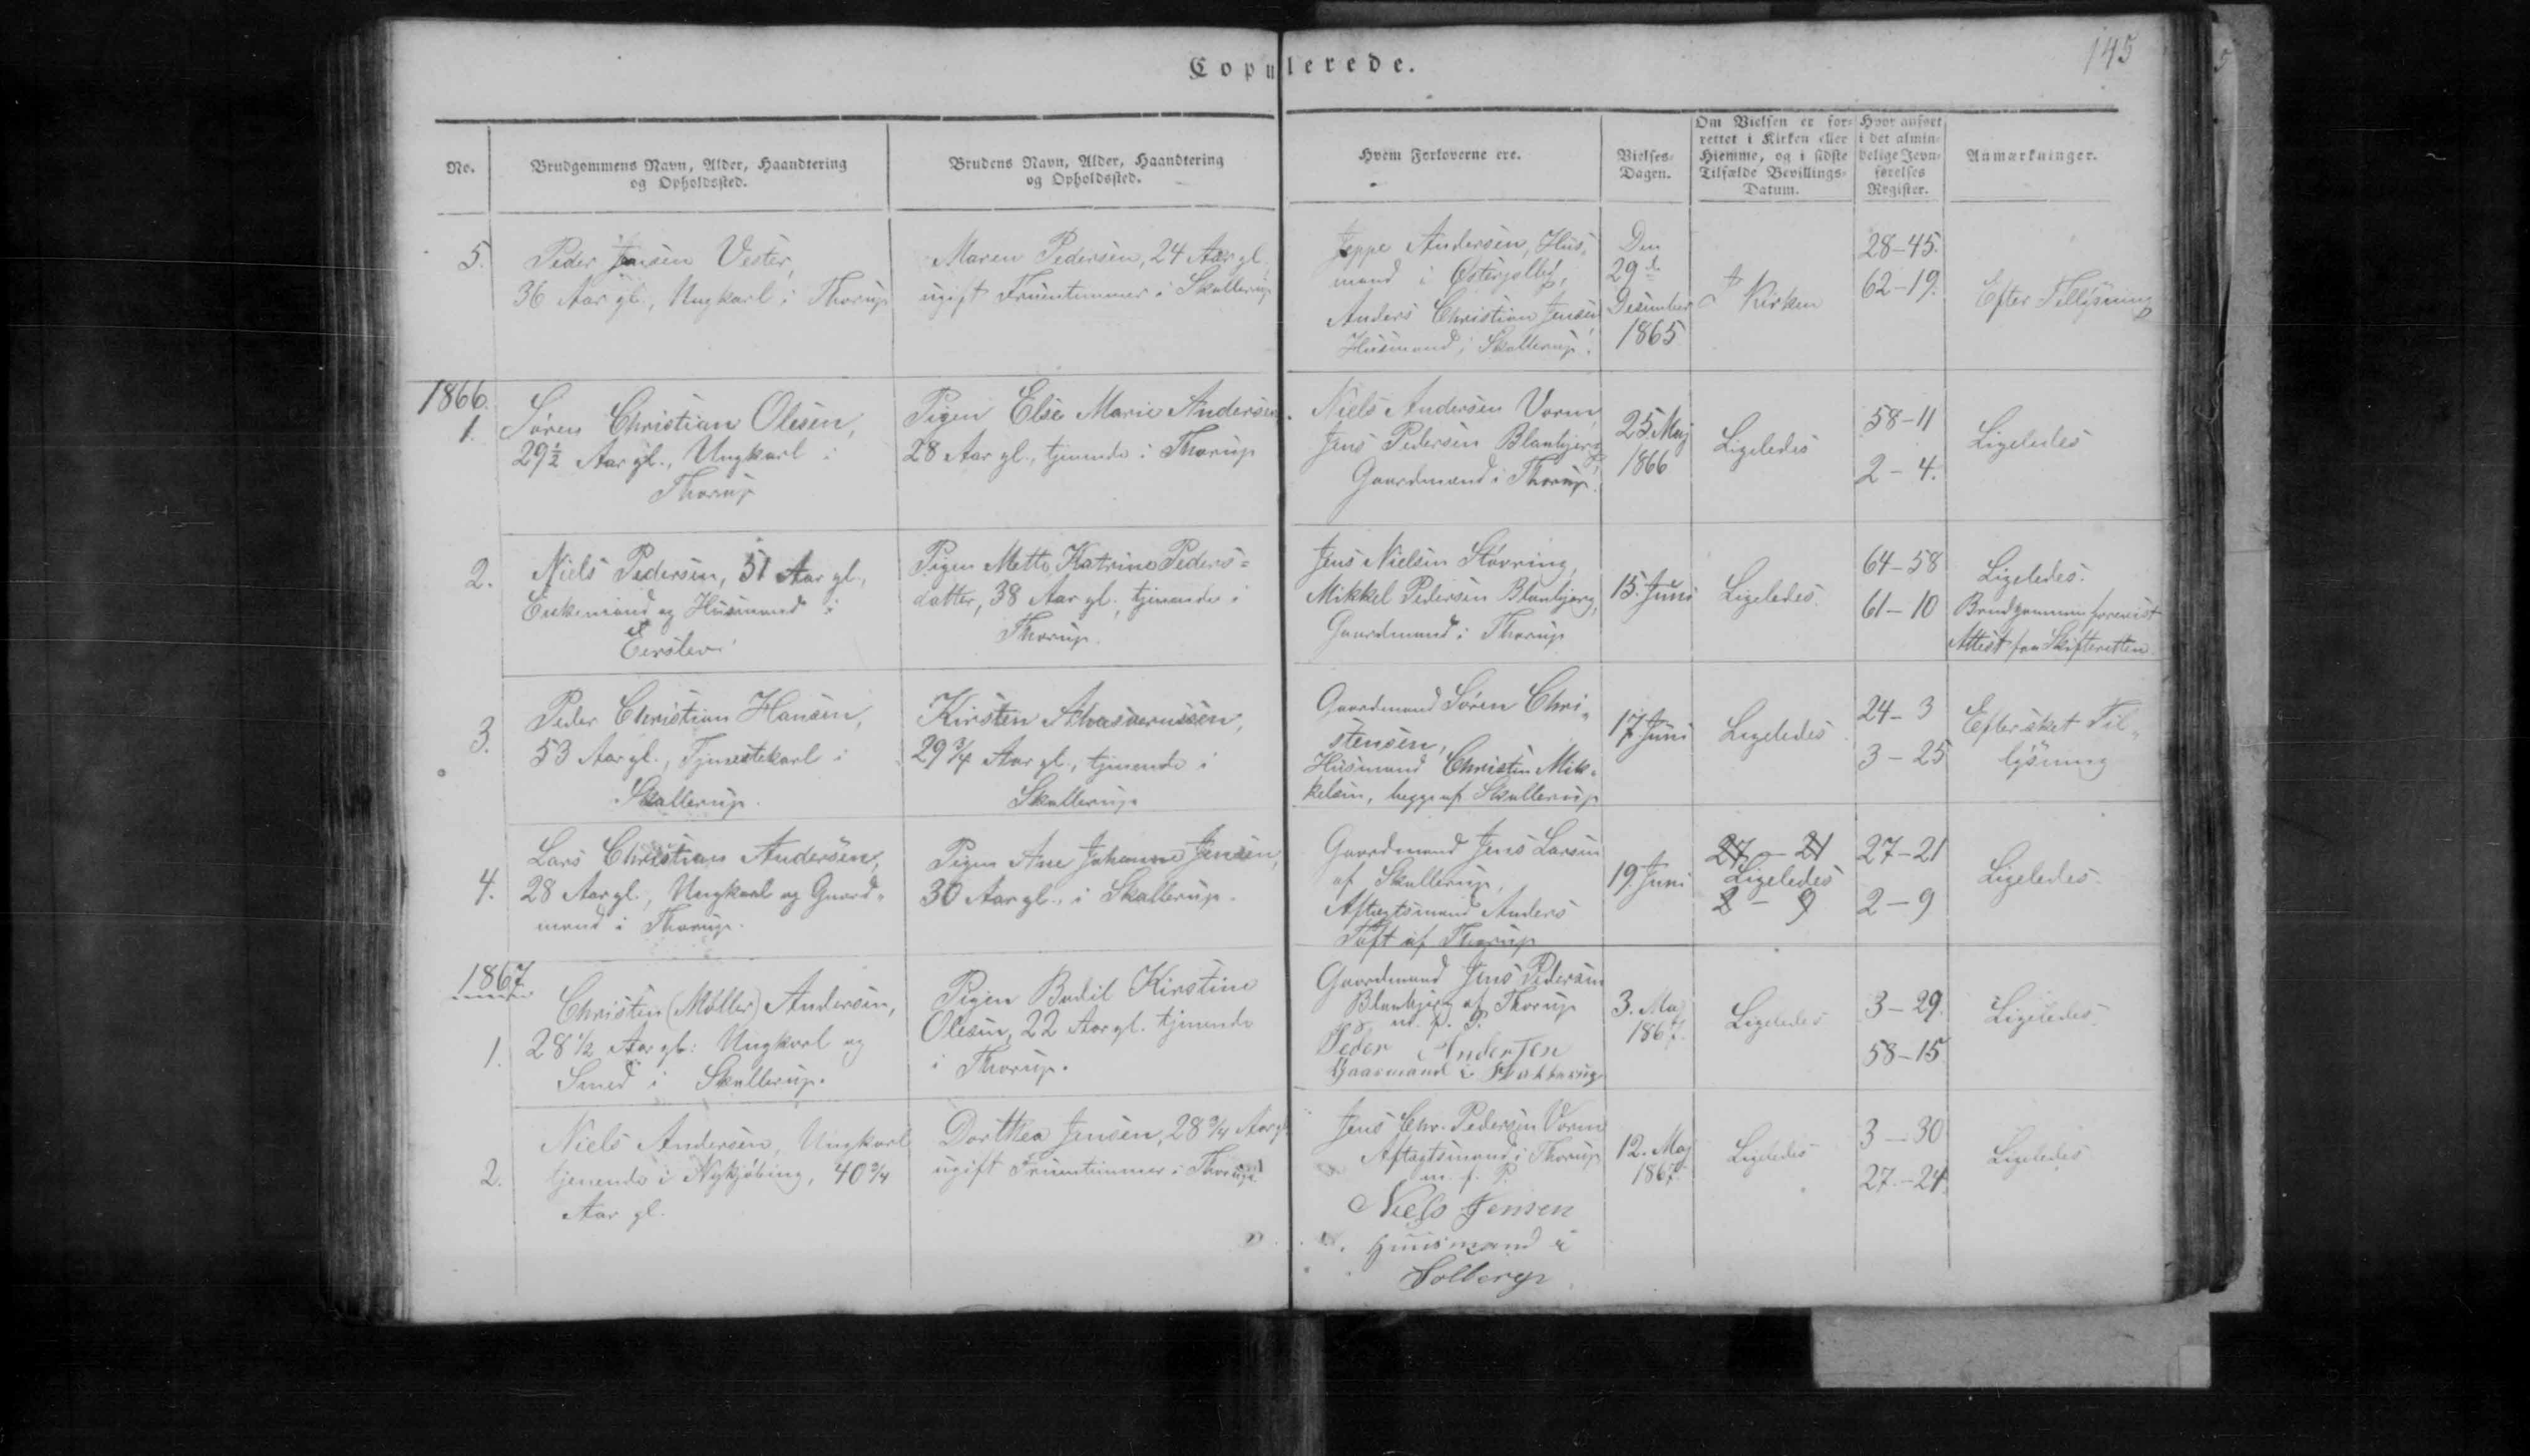 Copulerede.
145
No.
Brudgommens Navn, Alder, Haandtering
og Opholdssted.
Brudens Navn, Alder, Haandtering
og Opholdssted.
Hvem Forloverne ere.
Vielses-
Dagen.
Om Vielsen er for-
rettet i Kirken eller
Hiemme, og i sidste
Tilfælde Bevillings-
Datum.
Hvor anført
i det almin-
delige Jevn-
førelses
Register.
Anmærkninger.
5.
Peder Jensen Vester,
36 Aar gl., Ungkarl i Thorup
Maren Pedersen, 24 Aar gl.
ugift Fruentimmer i Skallerup
Jeppe Andersen, Hus-
mand i Østerjølby,
Anders Christian Jensen
Husmand i Skallerup.
Den
29de
Desember
1865
I Kirken
28-45.
62-19.
Efter Tillysning
1866.
1.
Søren Christian Olesen,
29½ Aar gl., Ungkarl i
Thorup
Pigen Else Marie Andersen,
28 Aar gl., tjenende i Thorup
Niels Andersen Vorm,
Jens Pedersen Blanbjerg
Gaardmænd i Thorup.
25. Maj
1866
Ligeledes
58-11
2-4.
Ligeledes
2.
Niels Pedersen, 51 Aar gl.,
Enkemand og Husmand i
Eerslev
Pigen Mette Katrine Peders=
datter, 38 Aar gl., tjenende i
Thorup.
Jens Nielsen Støvring,
Mikkel Pedersen Blanbjerg,
Gaardmænd i Thorup
15. Juni
Ligeledes.
64-58
61-10
Ligeledes.
Brudgommen forevist
Attest fra Skifteretten.
3.
Peder Christian Hansen,
53 Aar gl., Tjenestekarl i
Skallerup.
Kirsten Ahasverussen,
29¾ Aar gl., tjenende i
Skallerup
Gaardmand Søren Chri-
stensen,
Husmand Christen Mik-
kelsen, begge af Skallerup
17. Juni
Ligeledes
24-3
3-25
Efter sket Til-
lysning
4.
Lars Christian Andersen,
28 Aar gl., Ungkarl og Gaard-
mand i Thorup.
Pigen Ane Johanne Jensen,
30 Aar gl., i Skallerup.
Gaardmand Jens Larsen
af Skallerup,
Aftægtsmand Anders
Toft af Thorup
19. Juni
27-21
Ligeledes
2-9
27-21
2-9
Ligeledes.
1867.
1.
Christen (Møller) Andersen,
28½ Aar gl: Ungkarl og
Smed i Skallerup.
Pigen Bodil Kirstine
Olesen, 22 Aar gl. tjenende
i Thorup.
Gaardmand Jens Pedersen
Blanbjerg af Thorup
m. f. P.
Peder Andersen
Gaarmand i Skallerup
3. Maj
1867.
Ligeledes
3-29.
58-15
Ligeledes.
2.
Niels Andersen, Ungkarl
tjenende i Nykjøbing, 40¾
Aar gl.
Dorthea Jensen, 28¾ Aar gl
ugift Fruentimmer i Thorup
Jens Chr. Pedersen Vorm
Aftægtsmand i Thorup
m. f. P.
Niels Jensen
Huusmand i
Solberg
12. Maj
1867.
Ligeledes
3-30
27-24.
Ligeledes